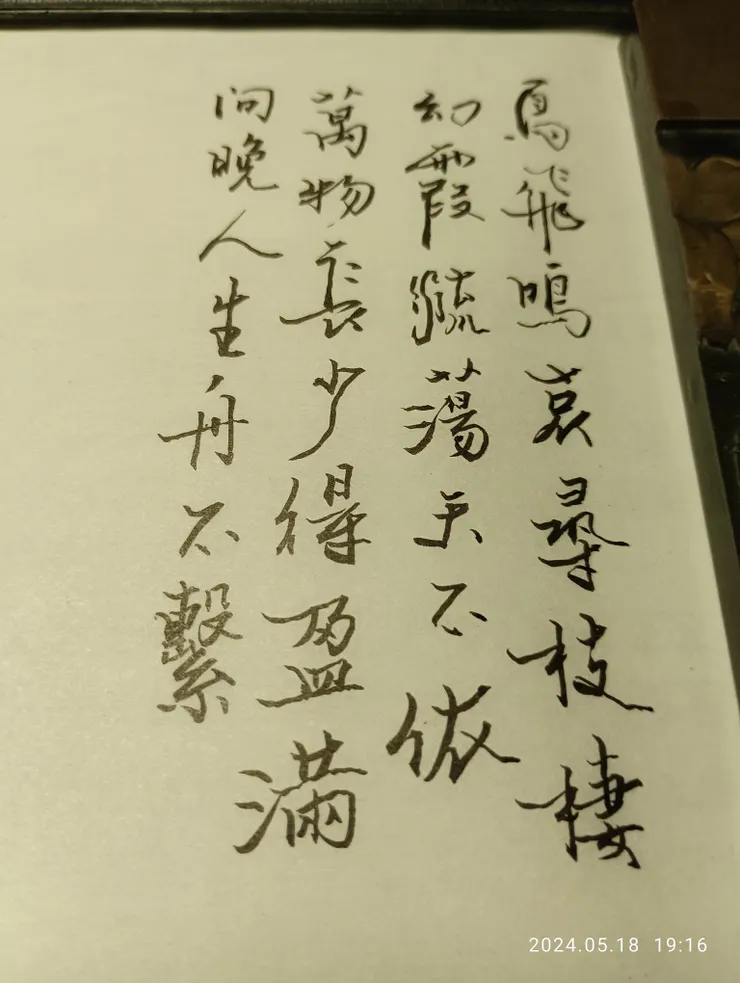 鳥飛鳴哀尋枝棲
幻霞飄蕩天不依
萬物長少得盈滿
问晚人生舟不繫
2024.05.18 19:16